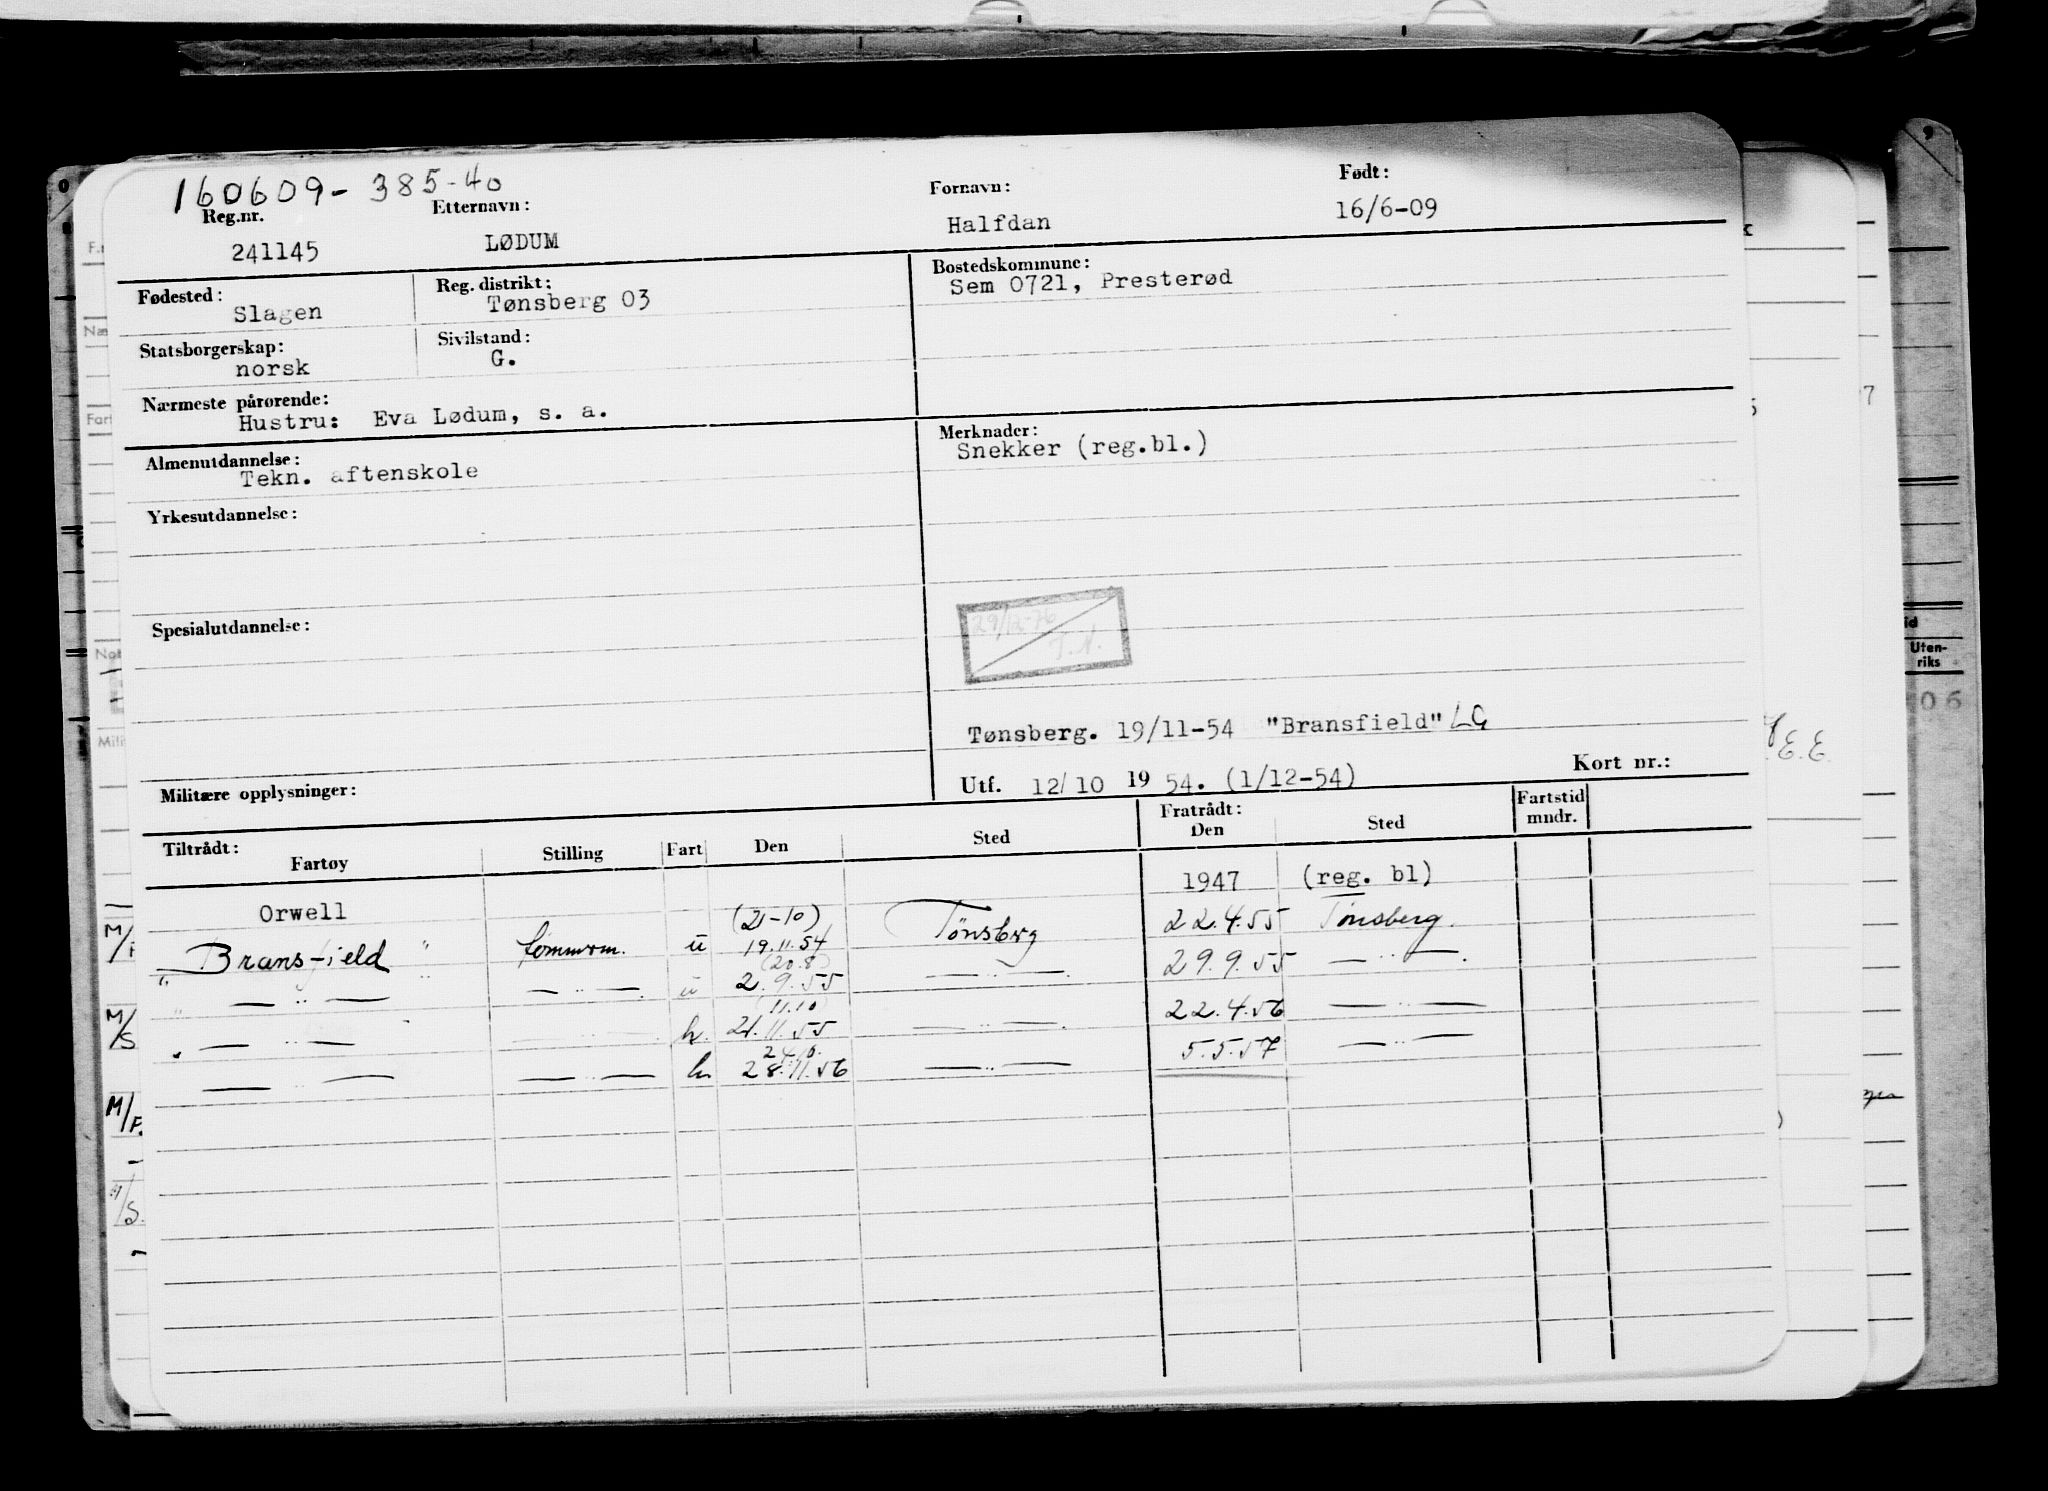 160609-385-40
Reg.nr. Etternavn: Fornavn: Født:
241145 LØDUM Halfdan 16/6-09
Fødested: Reg. distrikt: Bostedskommune:
Slagen Tønsberg 03 Sem 0721, Presterød
Statsborgerskap: Sivilstand:
norsk G.
Nærmeste pårørende:
Hustru: Eva Lødum, s. a.
Almenutdannelse: Merknader:
Tekn. aftenskole Snekker (reg.bl.)
Yrkesutdannelse:
Spesialutdannelse:
29/12-76
T.N.
Tønsberg. 19/11-54 "Bransfield" LG
Militære opplysninger: Utf. 12/10 1954. (1/12-54) Kort nr.:
Tiltrådt: Fratrådt: Fartstid
Fartøy Stilling Fart Den Sted Den Sted mndr.
Orwell 1947 (reg. bl)
(21-10)
" Bransfield " ü 19.11.54 Tønsberg 22.4.55 Tønsberg.
(20.8)
" — " — " — " — ü 2.9.55 — " — 29.9.55 — " —
(11.10)
" — " — h. 21.11.55 — " — 22.4.56 — " —
24/10.
— " — — " — h 28.11.56 — " — 5.5.57 — " —
M/
M/S
M/F.
M/S.
Uten-
riks
06
E.E.